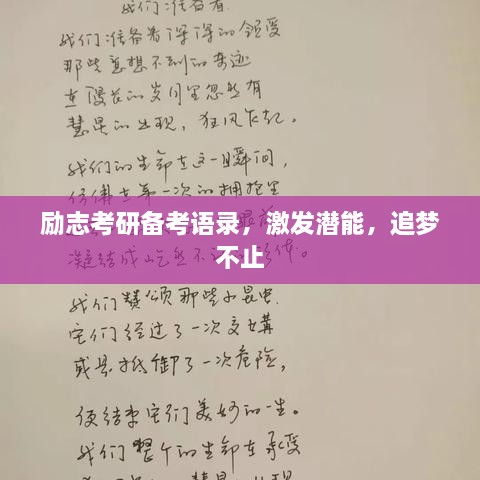 我们准备着
我们准备着深深的领受
那些意想不到的奇迹
在漫长的岁月里忽然有
慧星的出现，狂风乍起。
我们的生命在这一瞬间，
仿佛在第一次的拥抱里
励志考研备考语录，激发潜能，追梦
不止
凝结成屹然不
我们赞颂那些小昆虫
它们经过了一次交媾
或是抵御了一次危险，
便结束它们美妙的一生。
我们整个的生命在承受